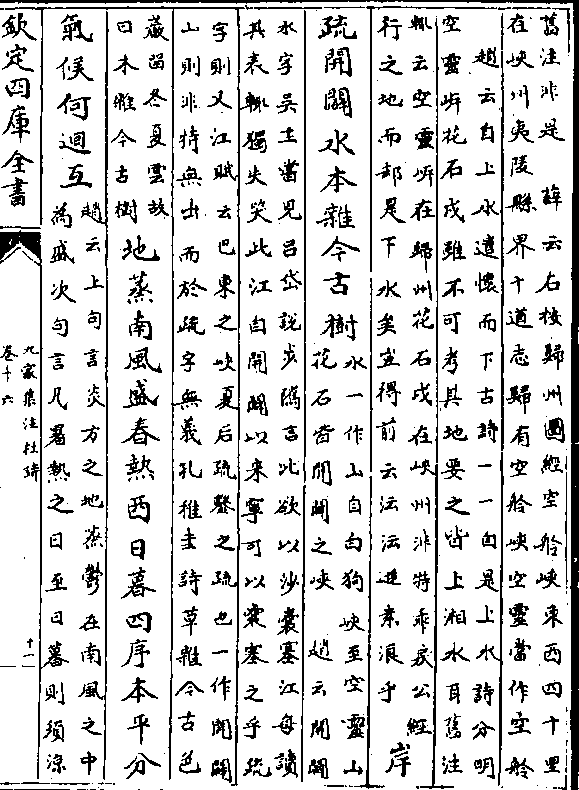 舊注非是　薛云右按歸州圖經空舲峽東西四十里
在峽州夷陵縣界十道志歸有空舲峽空靈當作空舲
趙云自上水遣懷而下古詩一一自是上水詩分明
空靈岸花石戍雖不可考其地要之皆上湘水耳舊注
輒云空靈岸在歸州花石戍在峽州非特乖戾公經
行之地而却是下水矣豈得前云沄沄逆素浪乎
岸
疏開闢水本雜今古樹
水一作山自白狗峽至空靈山
花石皆開闢之峽　趙云開闢
水字吳主嘗見呂岱說步隲言北欲以沙囊塞江每讀
其表輒獨失笑此江自開闢以來寧可以囊塞之乎疏
字則又江賦云巴東之峽夏后疏鑿之疏也一作開闢
山則非特無出而於疏字無義孔稚圭詩草雜今古色
巖留冬夏雲故
曰木雜今古樹
地蒸南風盛春熱西日暮四序本平分
氣候何迴互
趙云上句言炎方之地蒸鬱在南風之中
為盛次句言凡暑熱之日至日暮則須涼
欽定四庫全書
九家集注杜詩
卷十六
十一